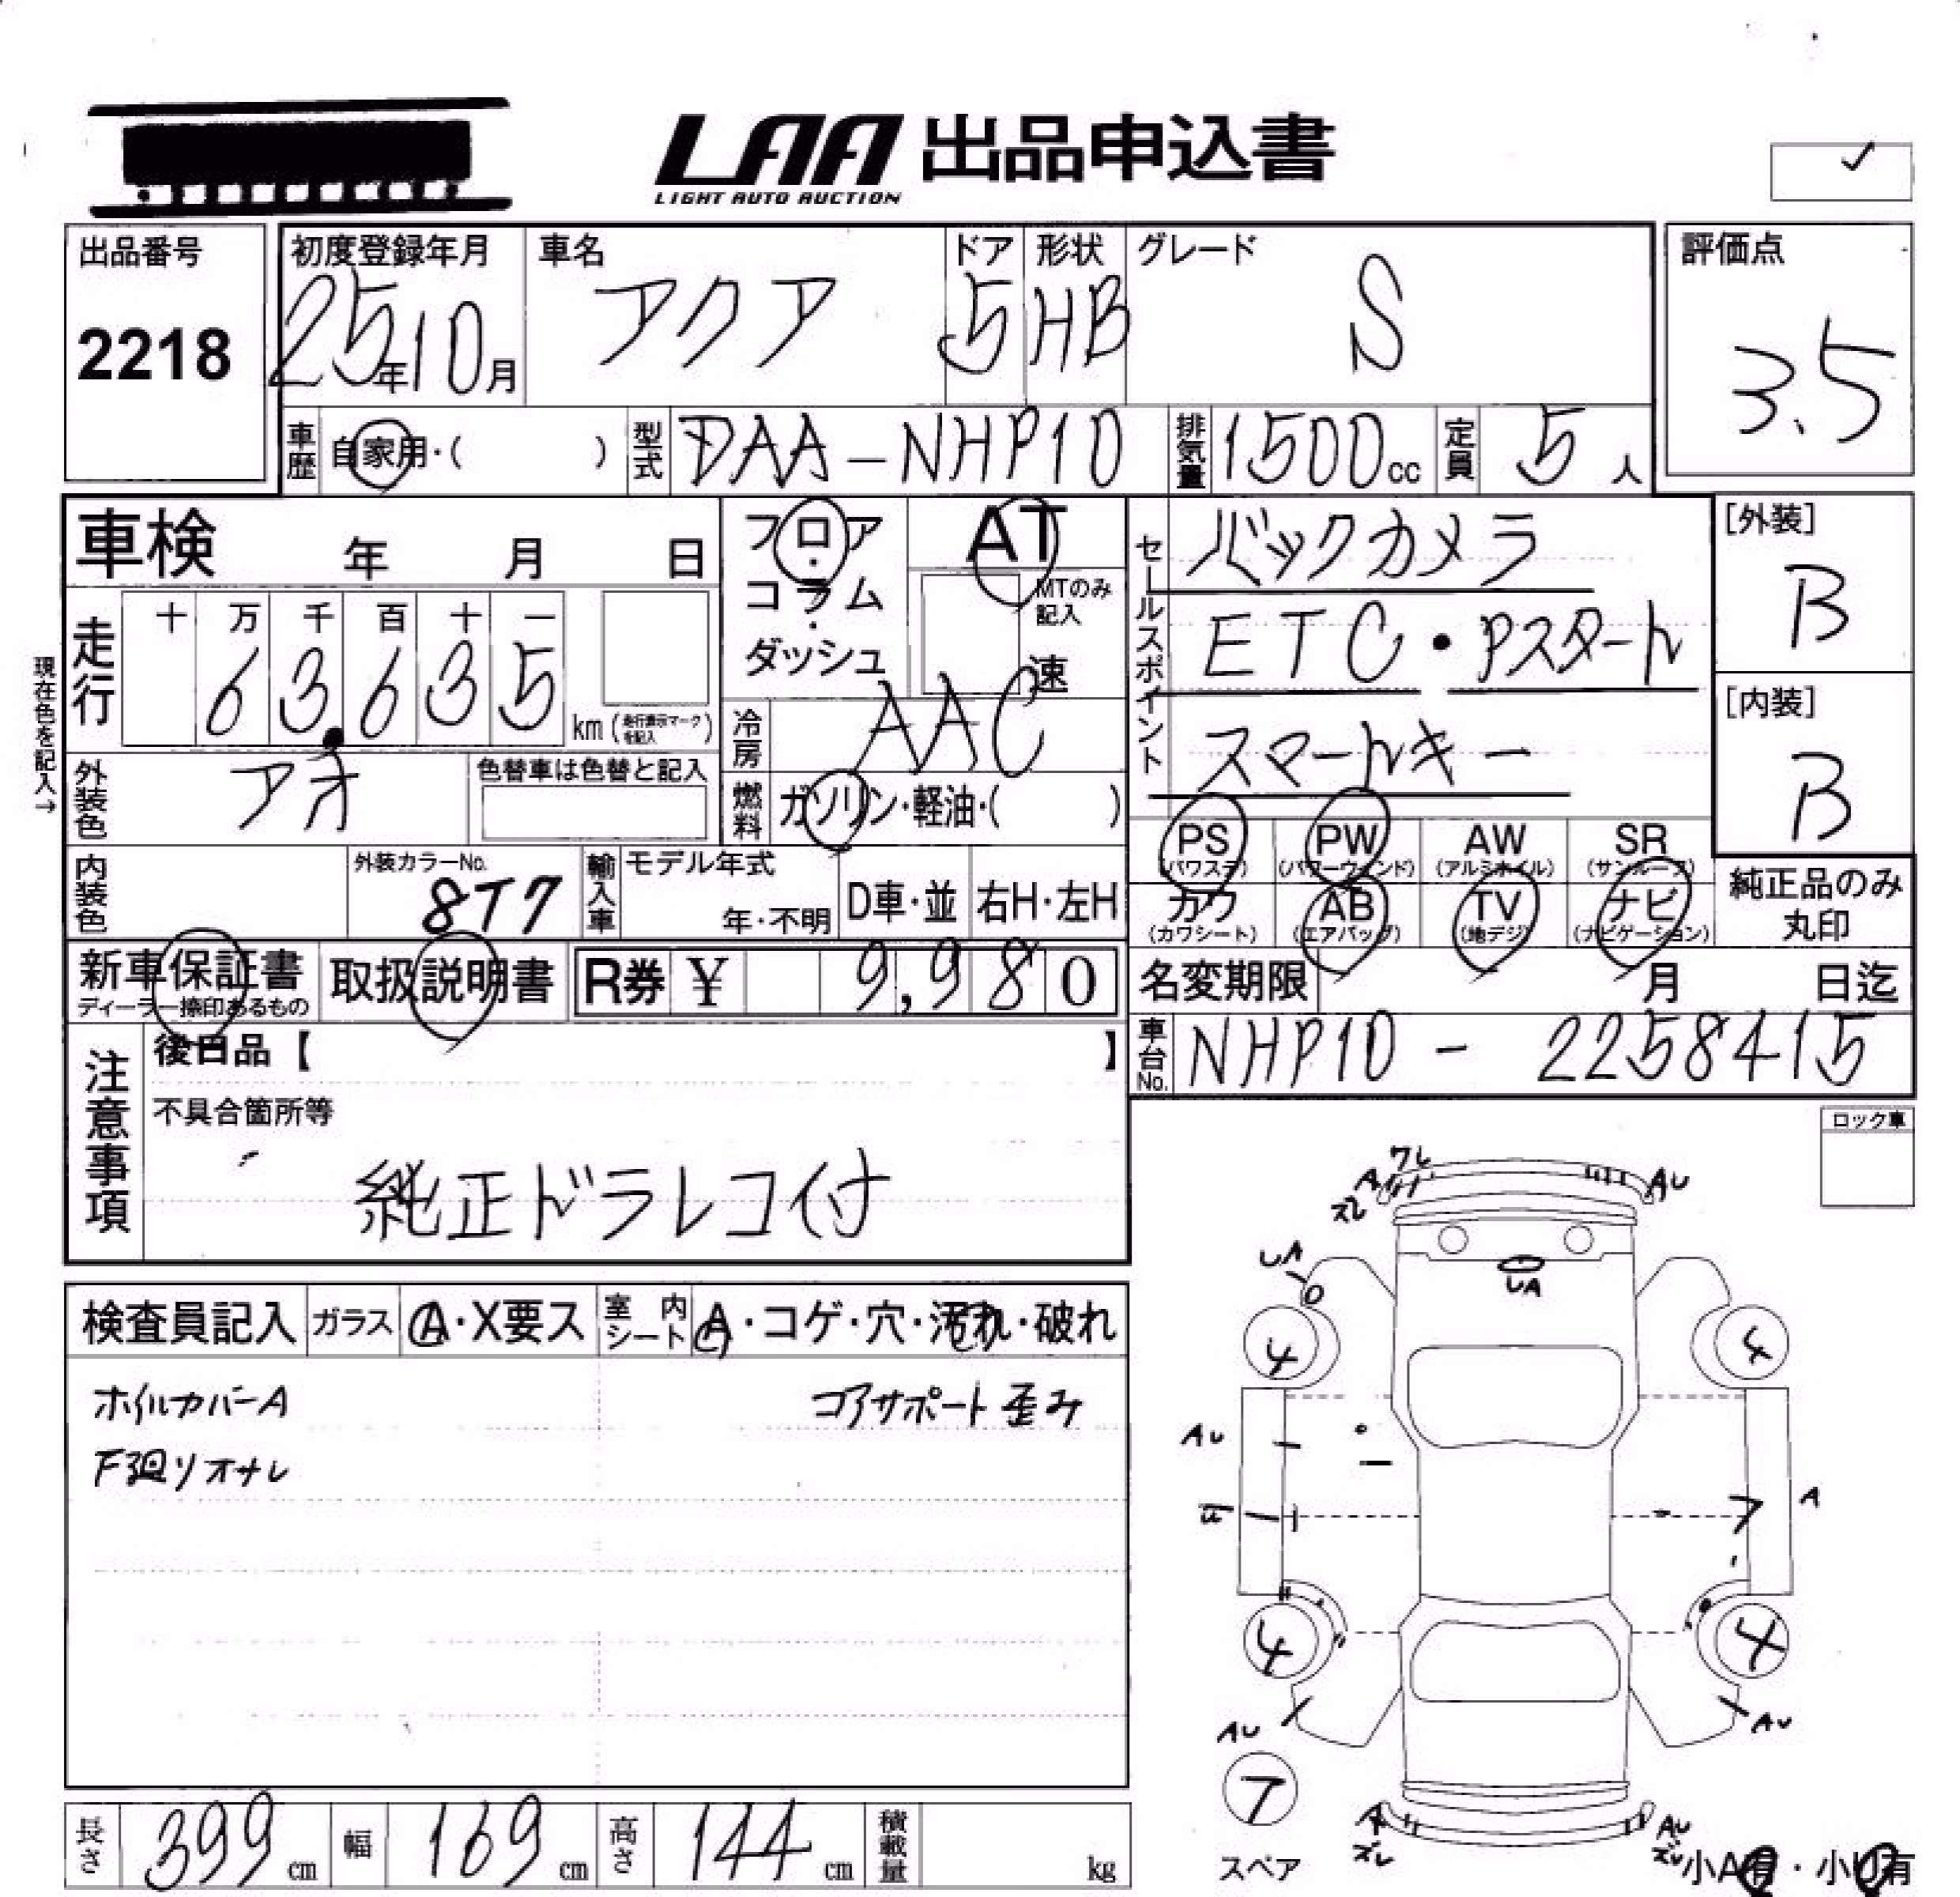 LAA 出品申込書
LIGHT AUTO AUCTION
出品番号
2218
初度登録年月
25年10月
車名
アクア
ドア
5
形状
HB
グレード
S
評価点
3.5
車歴 自家用・( )
型式 DAA-NHP10
排気量 1500cc
定員 5人
車検 年 月 日
フロア・コラム・ダッシュ
AT
MTのみ記入
速
セールスポイント
バックカメラ
ETC・Pスタート
スマートキー
[外装]
B
[内装]
B
現在色を記入→
走行
十 万 千 百 十 一
63.635
km(走行表示マークを記入)
冷房 AAC
外装色 アオ
色替車は色替と記入
燃料 ガソリン・軽油・( )
PS (パワステ)
PW (パワーウィンド)
AW (アルミホイル)
SR (サンルーフ)
カワ (カワシート)
AB (エアバッグ)
TV (地デジ)
ナビ (ナビゲーション)
純正品のみ丸印
内装色
外装カラーNo.
8T7
輸入車
モデル年式
年・不明
D車・並
右H・左H
新車保証書
ディーラー捺印あるもの
取扱説明書
R券 ¥ 9,980
名変期限 月 日迄
車台No. NHP10 - 2258415
注意事項
後日品【 】
不具合箇所等
純正ドラレコ付
ロック車
検査員記入
ガラス A・X要ス
室内シート A・コゲ・穴・汚れ・破れ
ホイルカバーA
コアサポート歪み
F廻リオサレ
ワレ
A
ズレ
AU
UA
UA
4
4
AU
A
4
4
AU
AU
7
スペア
A
ズレ
AU
ズレ
小A有・小U有
長さ 399cm
幅 169cm
高さ 144cm
積載量 kg